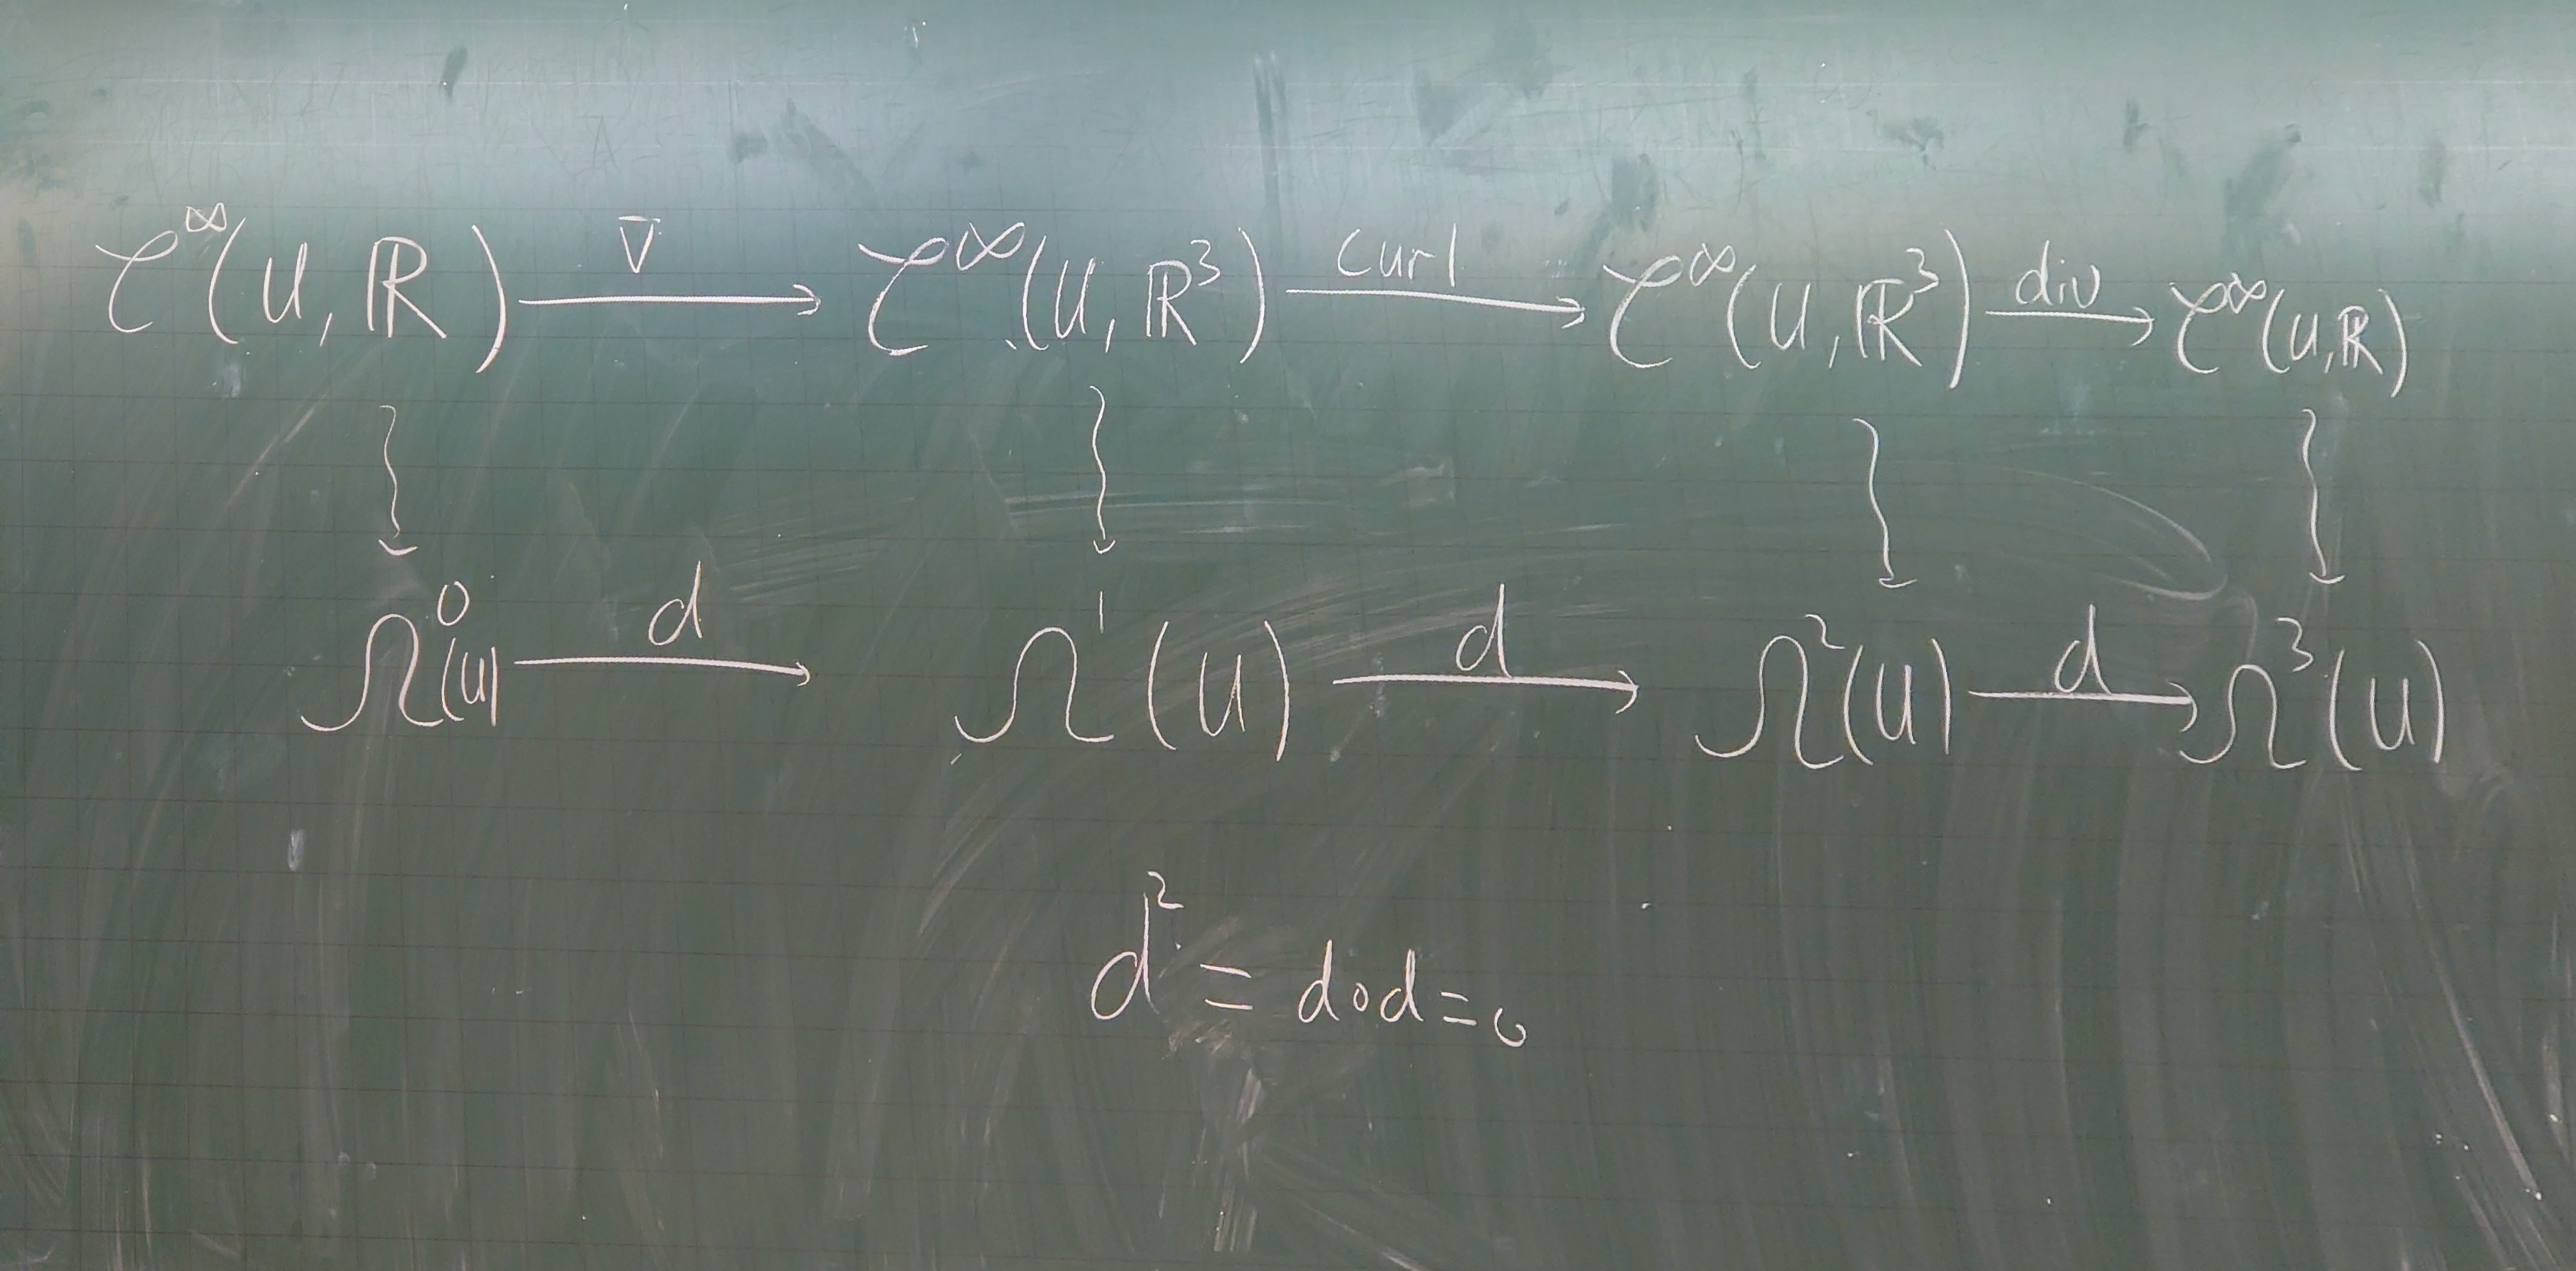 C^∞(U, ℝ) ∇→ C^∞(U, ℝ³) curl→ C^∞(U, ℝ³) div→ C^∞(U, ℝ)
Ω⁰(U) d→ Ω¹(U) d→ Ω²(U) d→ Ω³(U)
d² = d∘d = 0